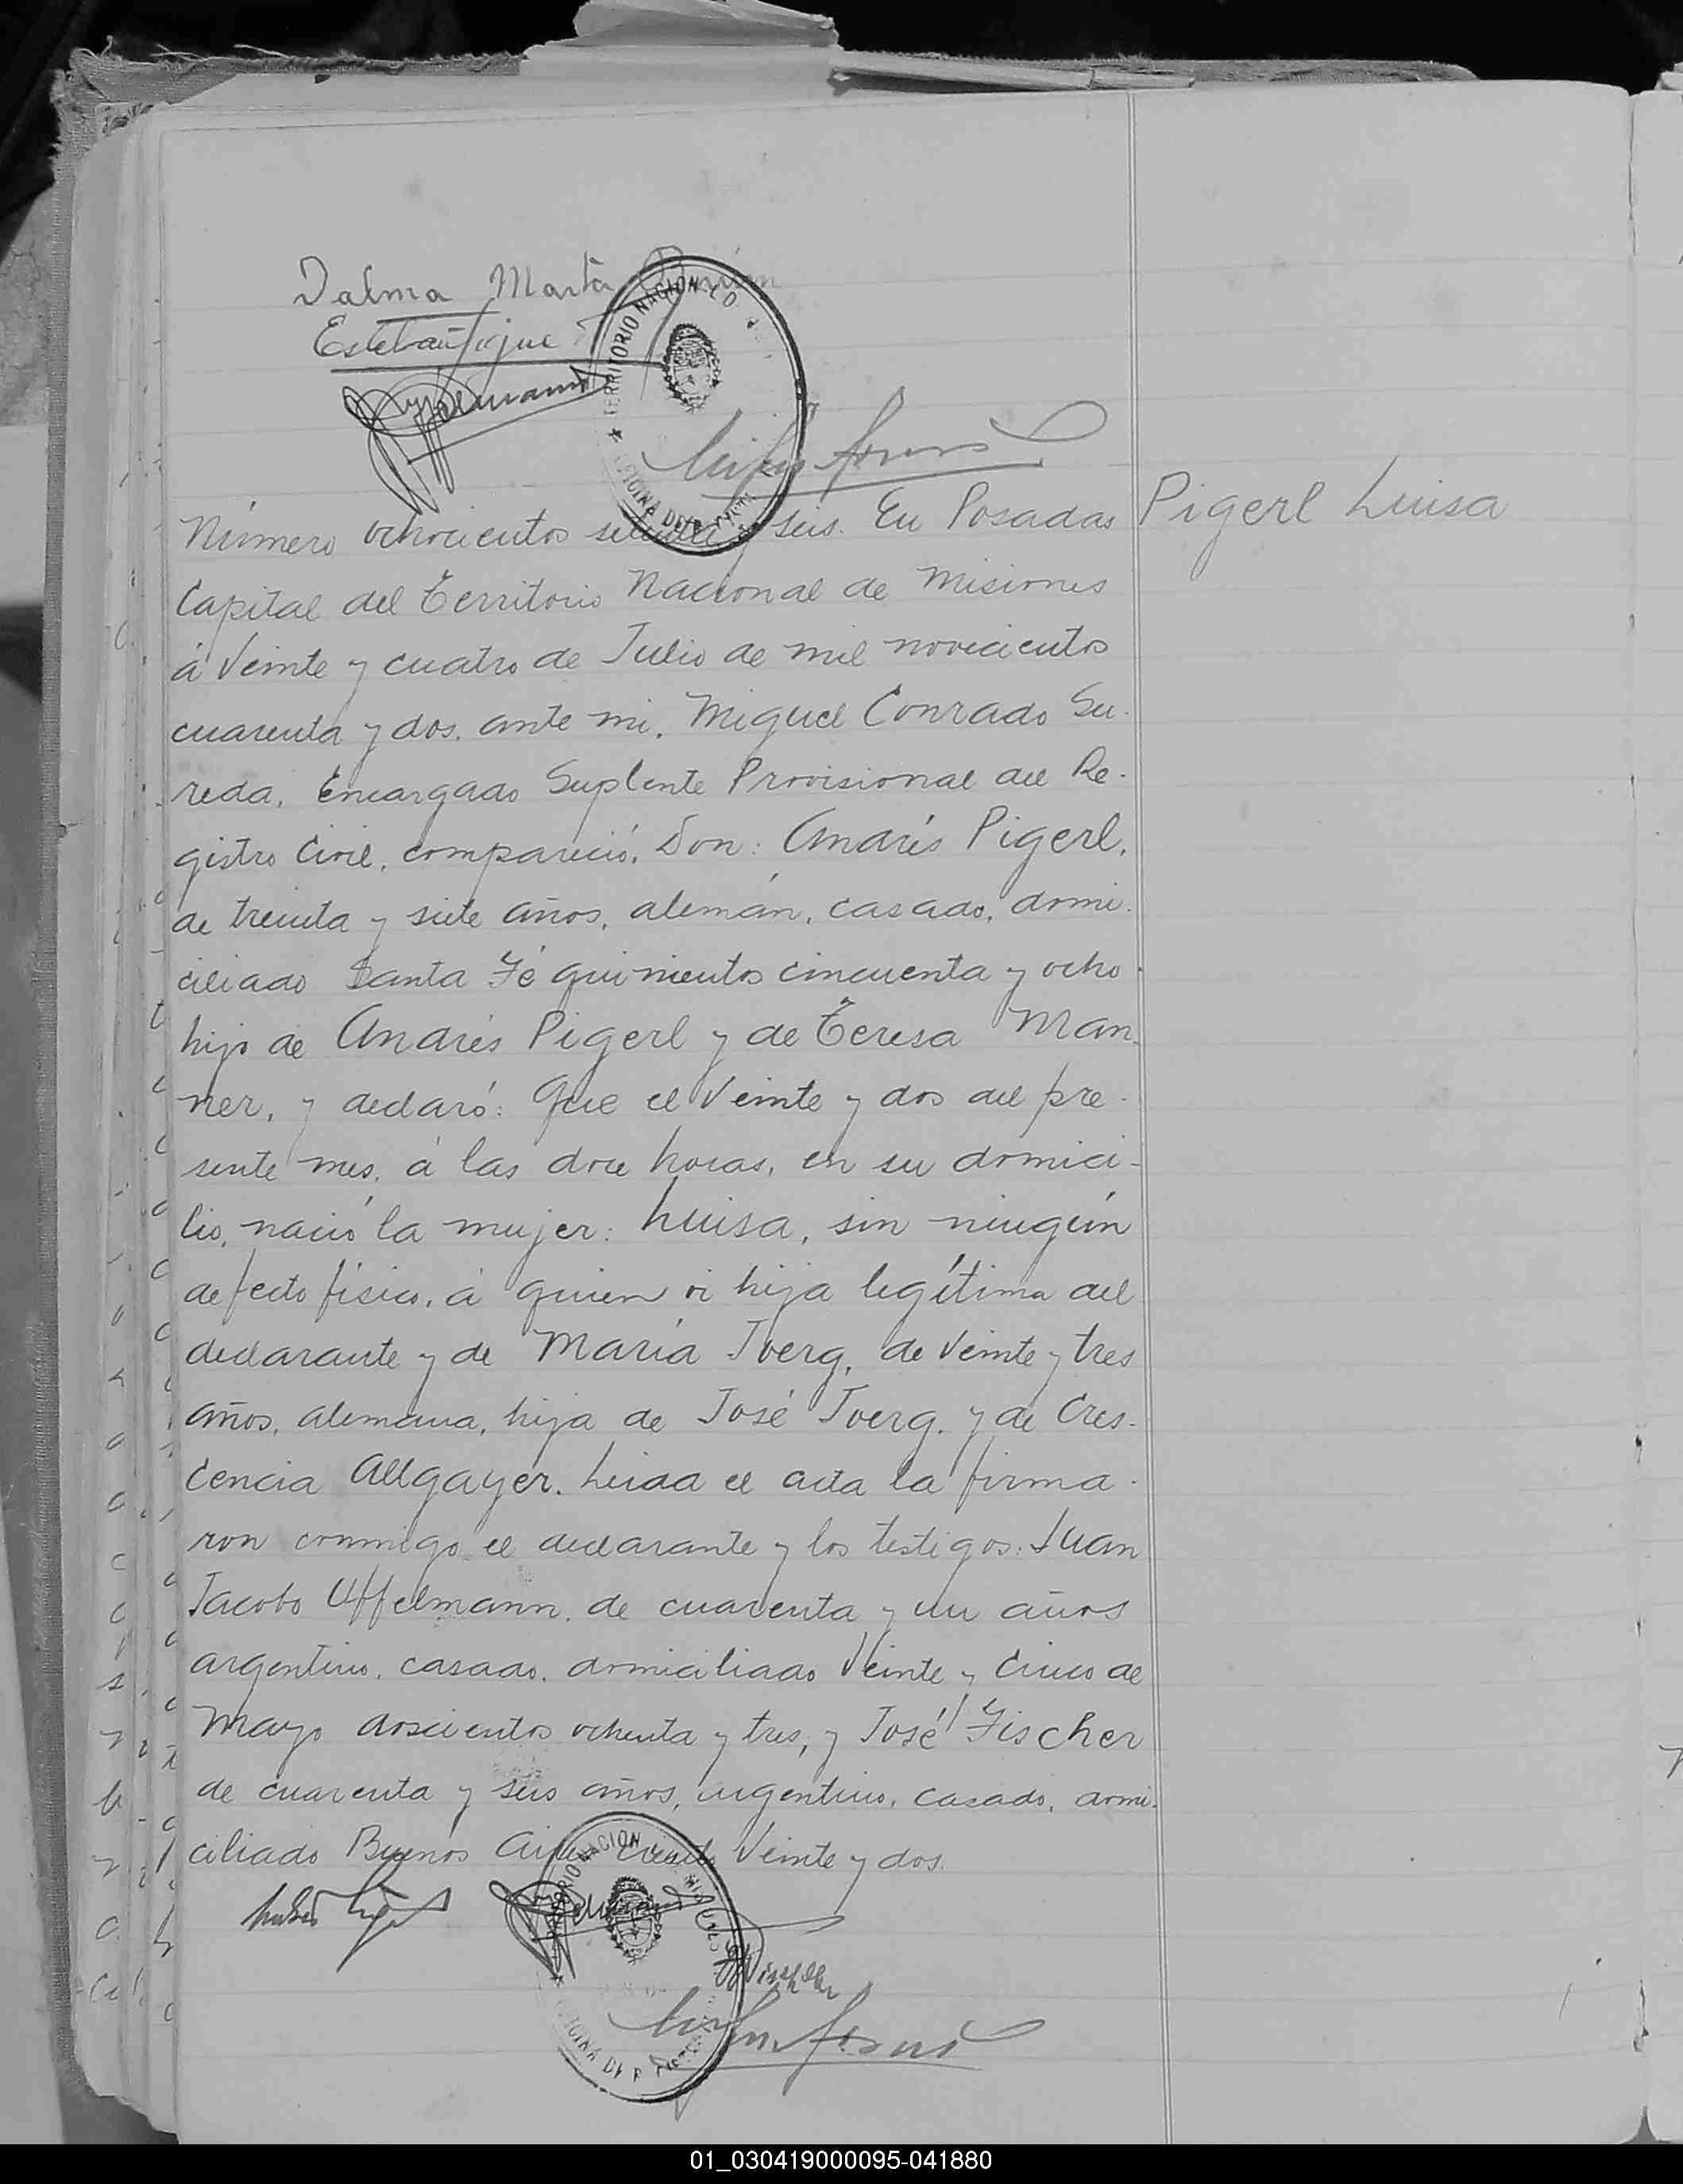 Dalma Marta
Esteban
TERRITORIO NACIONAL D
OFICINA DEL R
Pigerl Luisa
Número ochocientos setenta y seis. En Posadas
Capital del Territorio Nacional de Misiones
á Veinte y cuatro de Julio de mil novecientos
cuarenta y dos. ante mi. Miguel Conrado Su-
reda. Encargado Suplente Provisional del Re-
gistro Civil, compareció. Don: Andrés Pigerl,
de treinta y siete años, alemán, casado, domi-
ciliado Santa Fé quinientos cincuenta y ocho
hijo de Andrés Pigerl y de Teresa Man-
ner, y declaró: Que el Veinte y dos del pre-
sente mes. á las doce horas, en su domici-
lio, nació la mujer: Luisa, sin ningún
defecto físico, á quien vi hija legítima del
declarante y de Maria Joerg, de Veinte y tres
años, alemana, hija de José Joerg. y de Cres-
cencia Allgayer. Leida el acta la firma-
ron conmigo el declarante y los testigos: Juan
Jacobo Uffelmann, de cuarenta y un años
argentino, casado. domiciliado Veinte y Cinco de
Mayo doscientos ochenta y tres, y José Fischer
de cuarenta y seis años, argentino, casado, domi-
ciliado Buenos Aires Ciento Veinte y dos.
TERRITORIO NACION
OFICINA DEL R
01_030419000095-041880